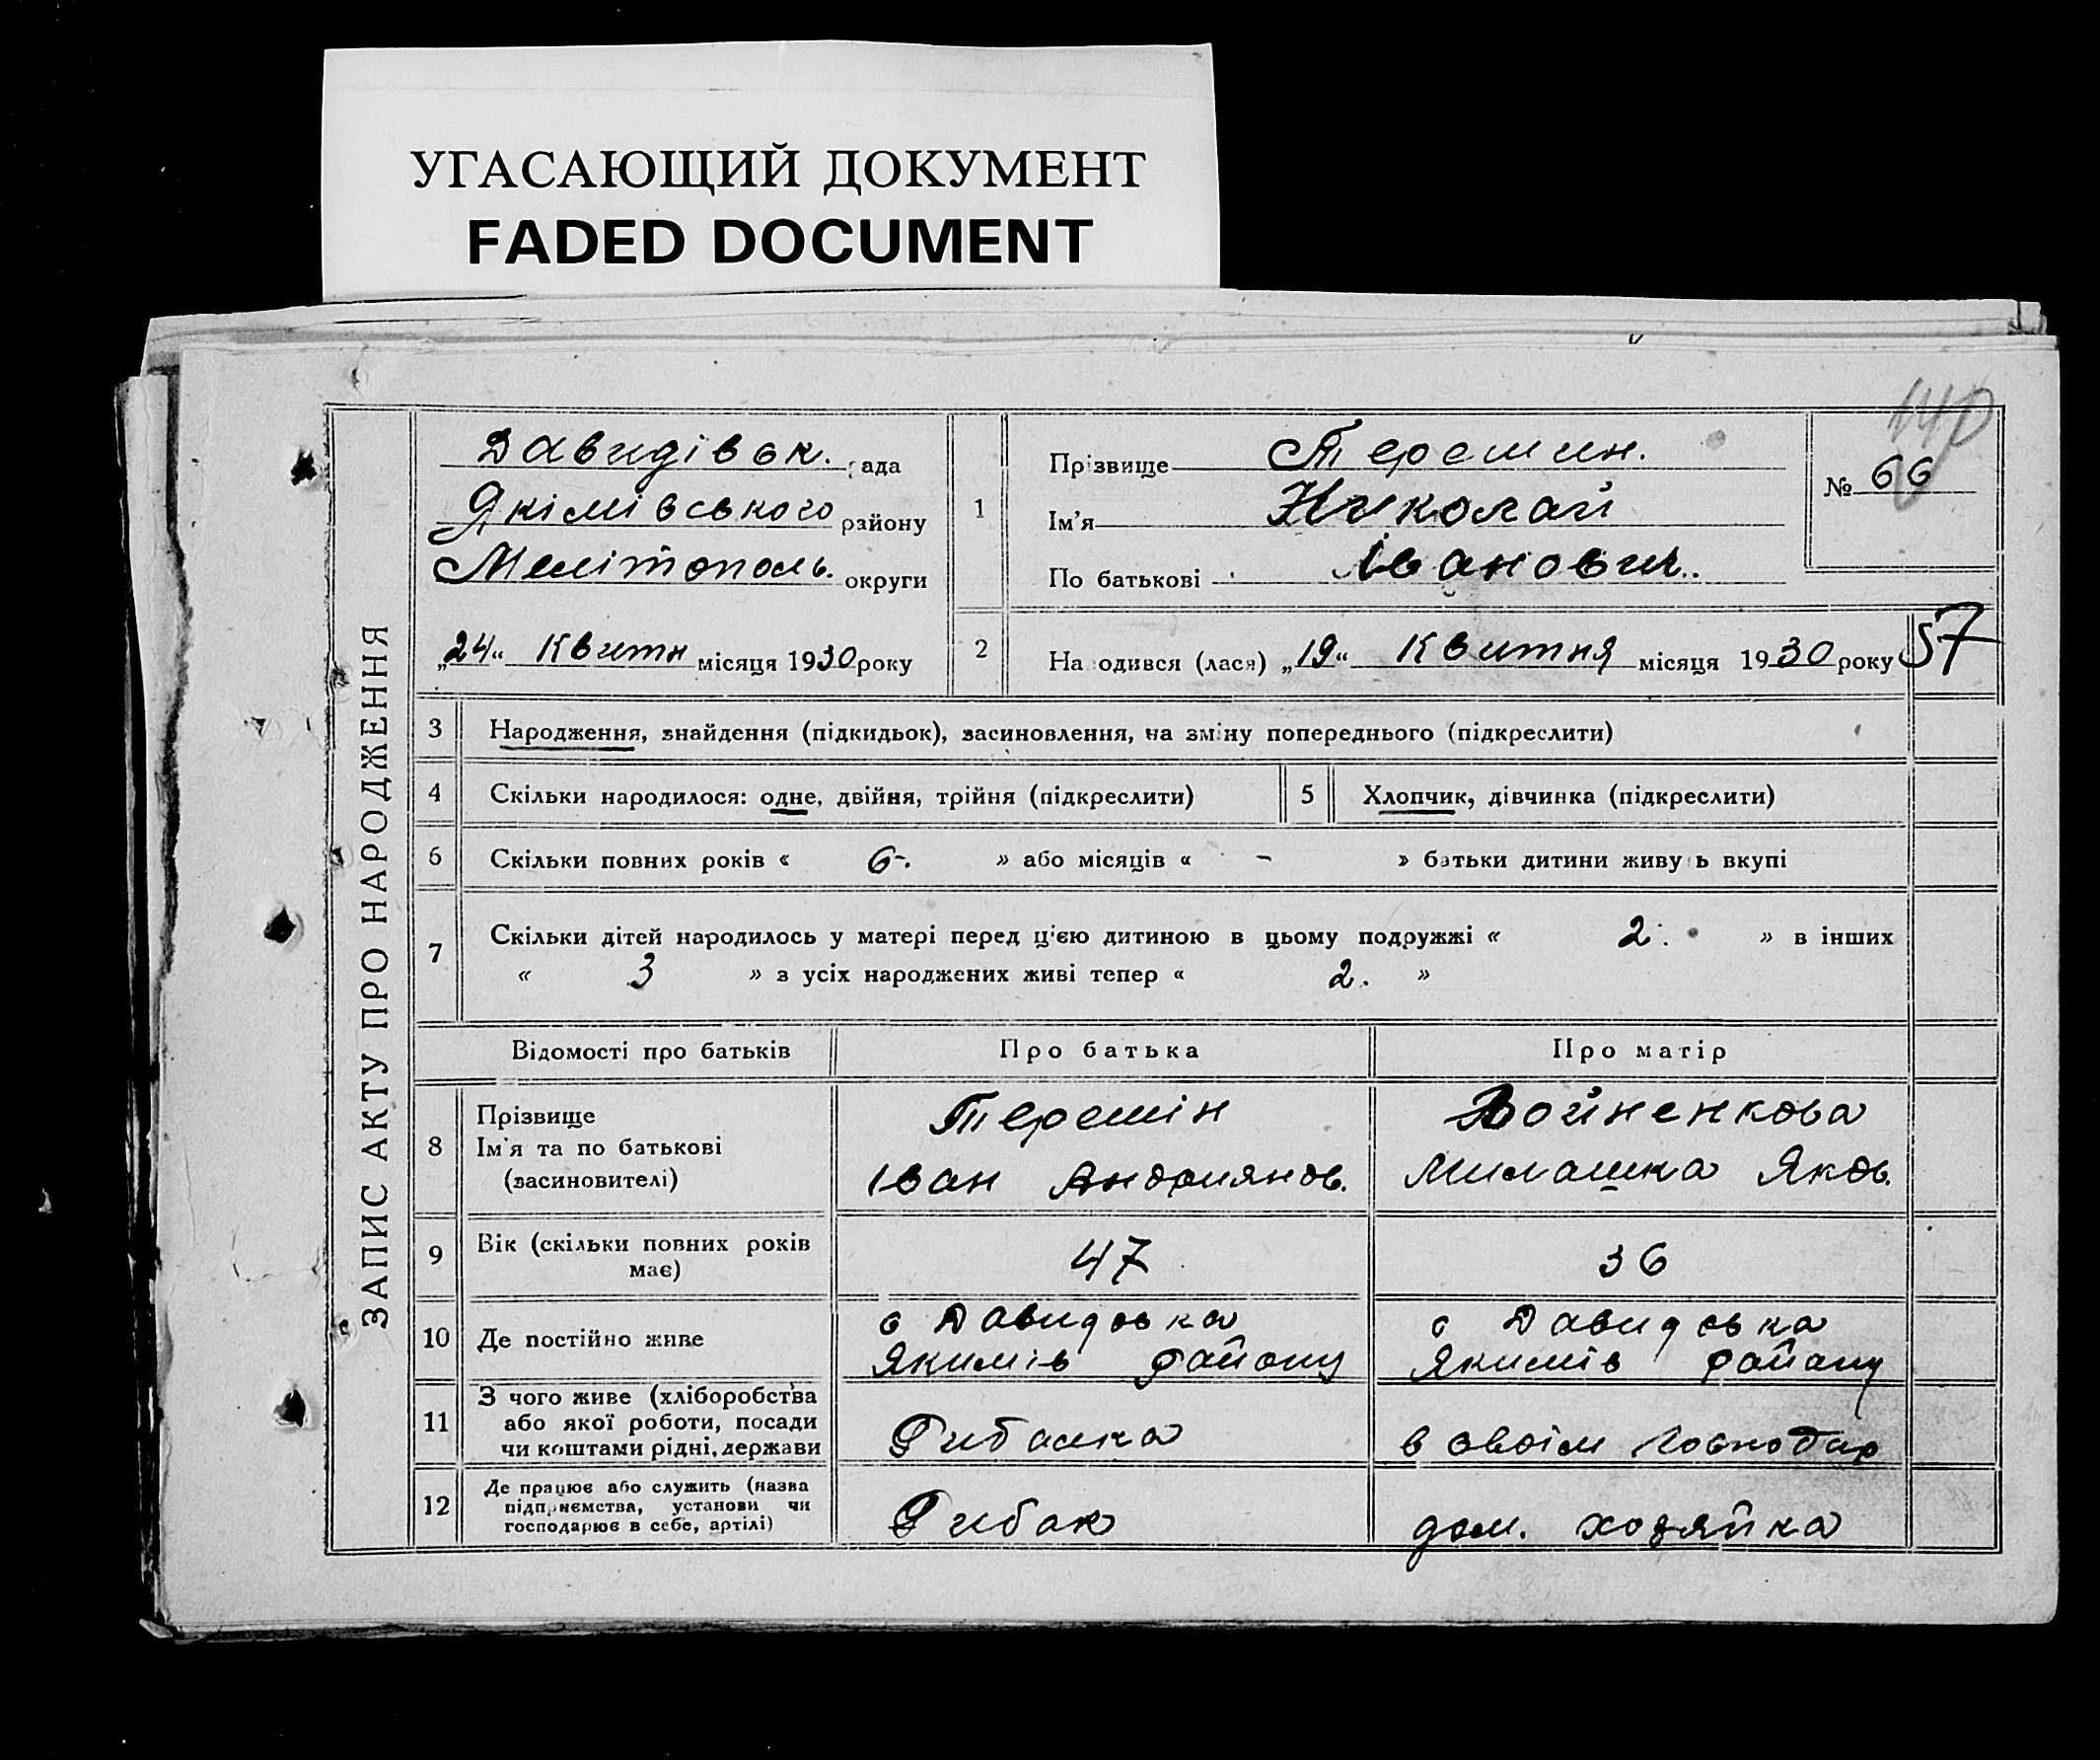 УГАСАЮЩИЙ ДОКУМЕНТ
FADED DOCUMENT
140
ЗАПИС АКТУ ПРО НАРОДЖЕННЯ
Давидівск. рада
Якімівського району
Мелітополь. округи
„24“ Квитн місяця 1930 року
1
Прізвище Теремин.
Ім'я Николай
По батькові Іванович.
№ 66
2
Народився (лася) „19“ Квитня місяця 1930 року
57
3 Народження, знайдення (підкидьок), засиновлення, на зміну попереднього (підкреслити)
4 Скільки народилося: одне, двійня, трійня (підкреслити)
5 Хлопчик, дівчинка (підкреслити)
6 Скільки повних років « 6-. » або місяців « - » батьки дитини живуть вкупі
7 Скільки дітей народилось у матері перед цією дитиною в цьому подружжі « 2. » в інших
« 3 » з усіх народжених живі тепер « 2. »
Відомості про батьків Про батька Про матір
8 Прізвище
Ім'я та по батькові
(засиновителі)
Теремін
Іван Андриянов.
Войненкова
Милашка Яков.
9 Вік (скільки повних років
має)
47
36
10 Де постійно живе
с Давидовка
Якимів району
с Давидовка
Якимів району
11 З чого живе (хліборобства
або якої роботи, посади
чи коштами рідні, держави
Рибалка
в своім господар
12 Де працює або служить (назва
підприємства, установи чи
господарює в себе, артілі)
Рибак
дом. хозяйка